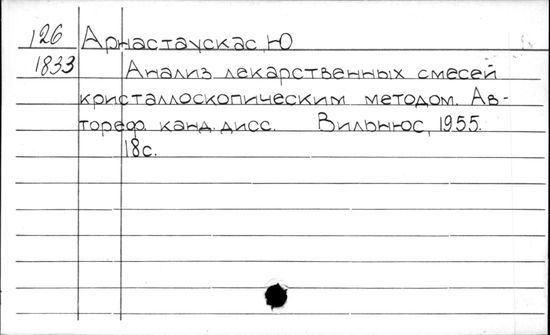 126 Арнастаускас, Ю
1833 Анализ лекарственных смесей
кристаллоскопическим методом. Ав-
тореф. канд. дисс. Вильнюс, 1955.
18с.